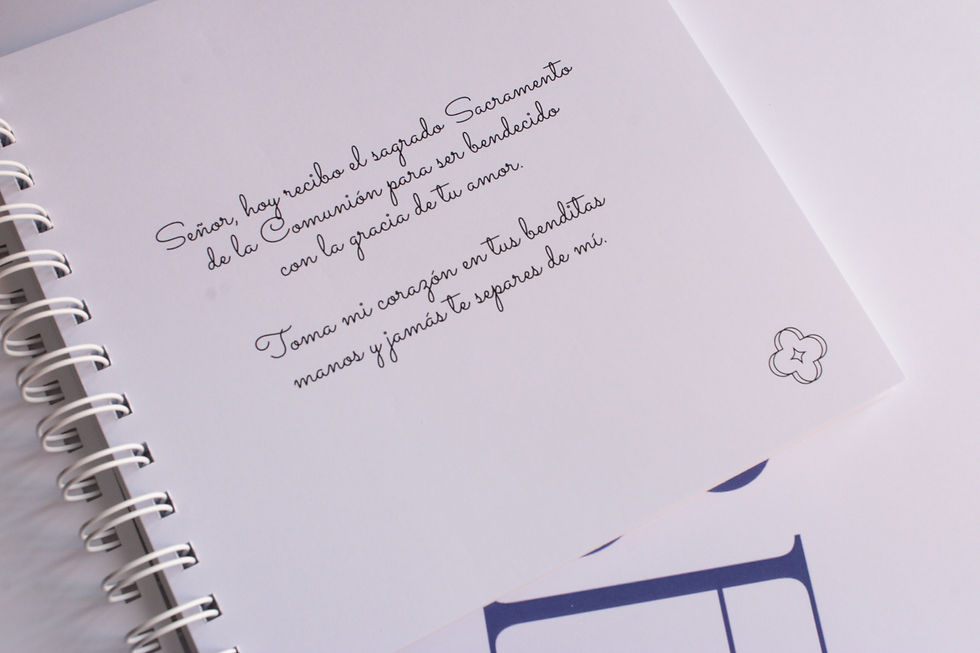 Señor, hoy recibo el sagrado Sacramento
de la Comunión para ser bendecido
con la gracia de tu amor.
Toma mi corazón en tus benditas
manos y jamás te separes de mí.